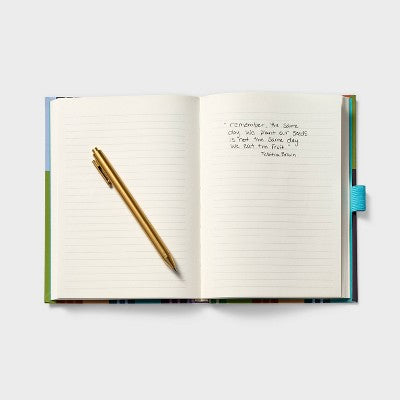 "remember, the same
day we plant our seeds
is not the same day
we eat the fruit."
Tabitha Brown